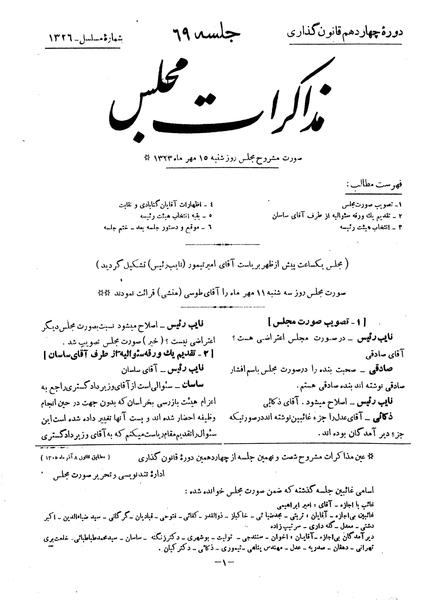 دورهٔ چهاردهم قانون‌گذاری
جلسه ۶۹
شمارهٔ مسلسل - ۱۳۲۶
مذاکرات مجلس
صورت مشروح مجلس روز شنبه ۱۵ مهر ماه ۱۳۲۳ *
فهرست مطالب :
۱- تصویب صورت‌مجلس
۲- تقدیم یك ورقه سئوالیه از طرف آقای ساسان
۳- انتخاب هیئت رئیسه
۴ - اظهارات آقایان گنابادی و نقابت
۵ - بقیه انتخاب هیئت رئیسه
۶ - موقع و دستور جلسه بعد - ختم جلسه
( مجلس یکساعت پیش از ظهر بریاست آقای امیرتیمور (نایب رئیس) تشکیل گردید )
صورت مجلس روز سه شنبه ۱۱ مهر ماه را آقای طوسی (منشی) قرائت نمودند **
[ ۱ - تصویب صورت مجلس ]
نایب رئیس - در صورت مجلس اعتراضی هست ؟
آقای صادقی
صادقی - صحبت بنده را در صورت مجلس باسم افشار
صادقی نوشته اند بنده صادقی هستم .
نایب رئیس - اصلاح میشود . آقای ذکائی
ذکائی - آقای عدل را جزء غائبین نوشته اند در صورتیکه
جزء دیر آمدگان بوده اند .
نایب رئیس - اصلاح میشود نسبت بصورت مجلس دیگر
اعتراضی نیست ؟ ( خیر ) صورت مجلس تصویب شد .
[ ۲ - تقدیم یك ورقه سئوالیه از طرف آقای ساسان ]
نایب رئیس - آقای ساسان
ساسان - سئوالی است از آقای وزیر دادگستری راجع به
اعزام هیئت بازرسی بخراسان که بدون جهت در حین انجام
وظیفه احضار شده اند و پست آنها تغییر داده شده است این
سئوال را تقدیم مقام ریاست میکنم که به آقای وزیر دادگستری
* عین مذاکرات مشروح شصت و نهمین جلسه از چهاردهمین دورهٔ قانون گذاری
( مطابق قانون ۸ آذر ماه ۱۳۰۵ )
ادارهٔ تندنویسی و تحریر صورت مجلس
اسامی غائبین جلسه گذشته که ضمن صورت مجلس خوانده شده :
غائب با اجازه - آقای : امیر ابراهیمی
غائبین بی‌اجازه - آقایان : تربتی - مجد ضیائی - خاکباز - ذوالقدر - کفائی - فتوحی - قبادیان - گرگانی - سید ضیاءالدین - اکبر
دشتی - معدل - گله داری - سرتیپ زاده
دیر آمدگان بی اجازه - آقایان : اخوان - سنندجی - تولیت - بوشهری - دکتر زنگنه - ساسان - سید محمد طباطبائی - خلعت‌بری
تهرانی - دهقان - صدریه - عدل - مهندس پناهی - تیموری - ذکائی - دکتر کیان .
-۱-